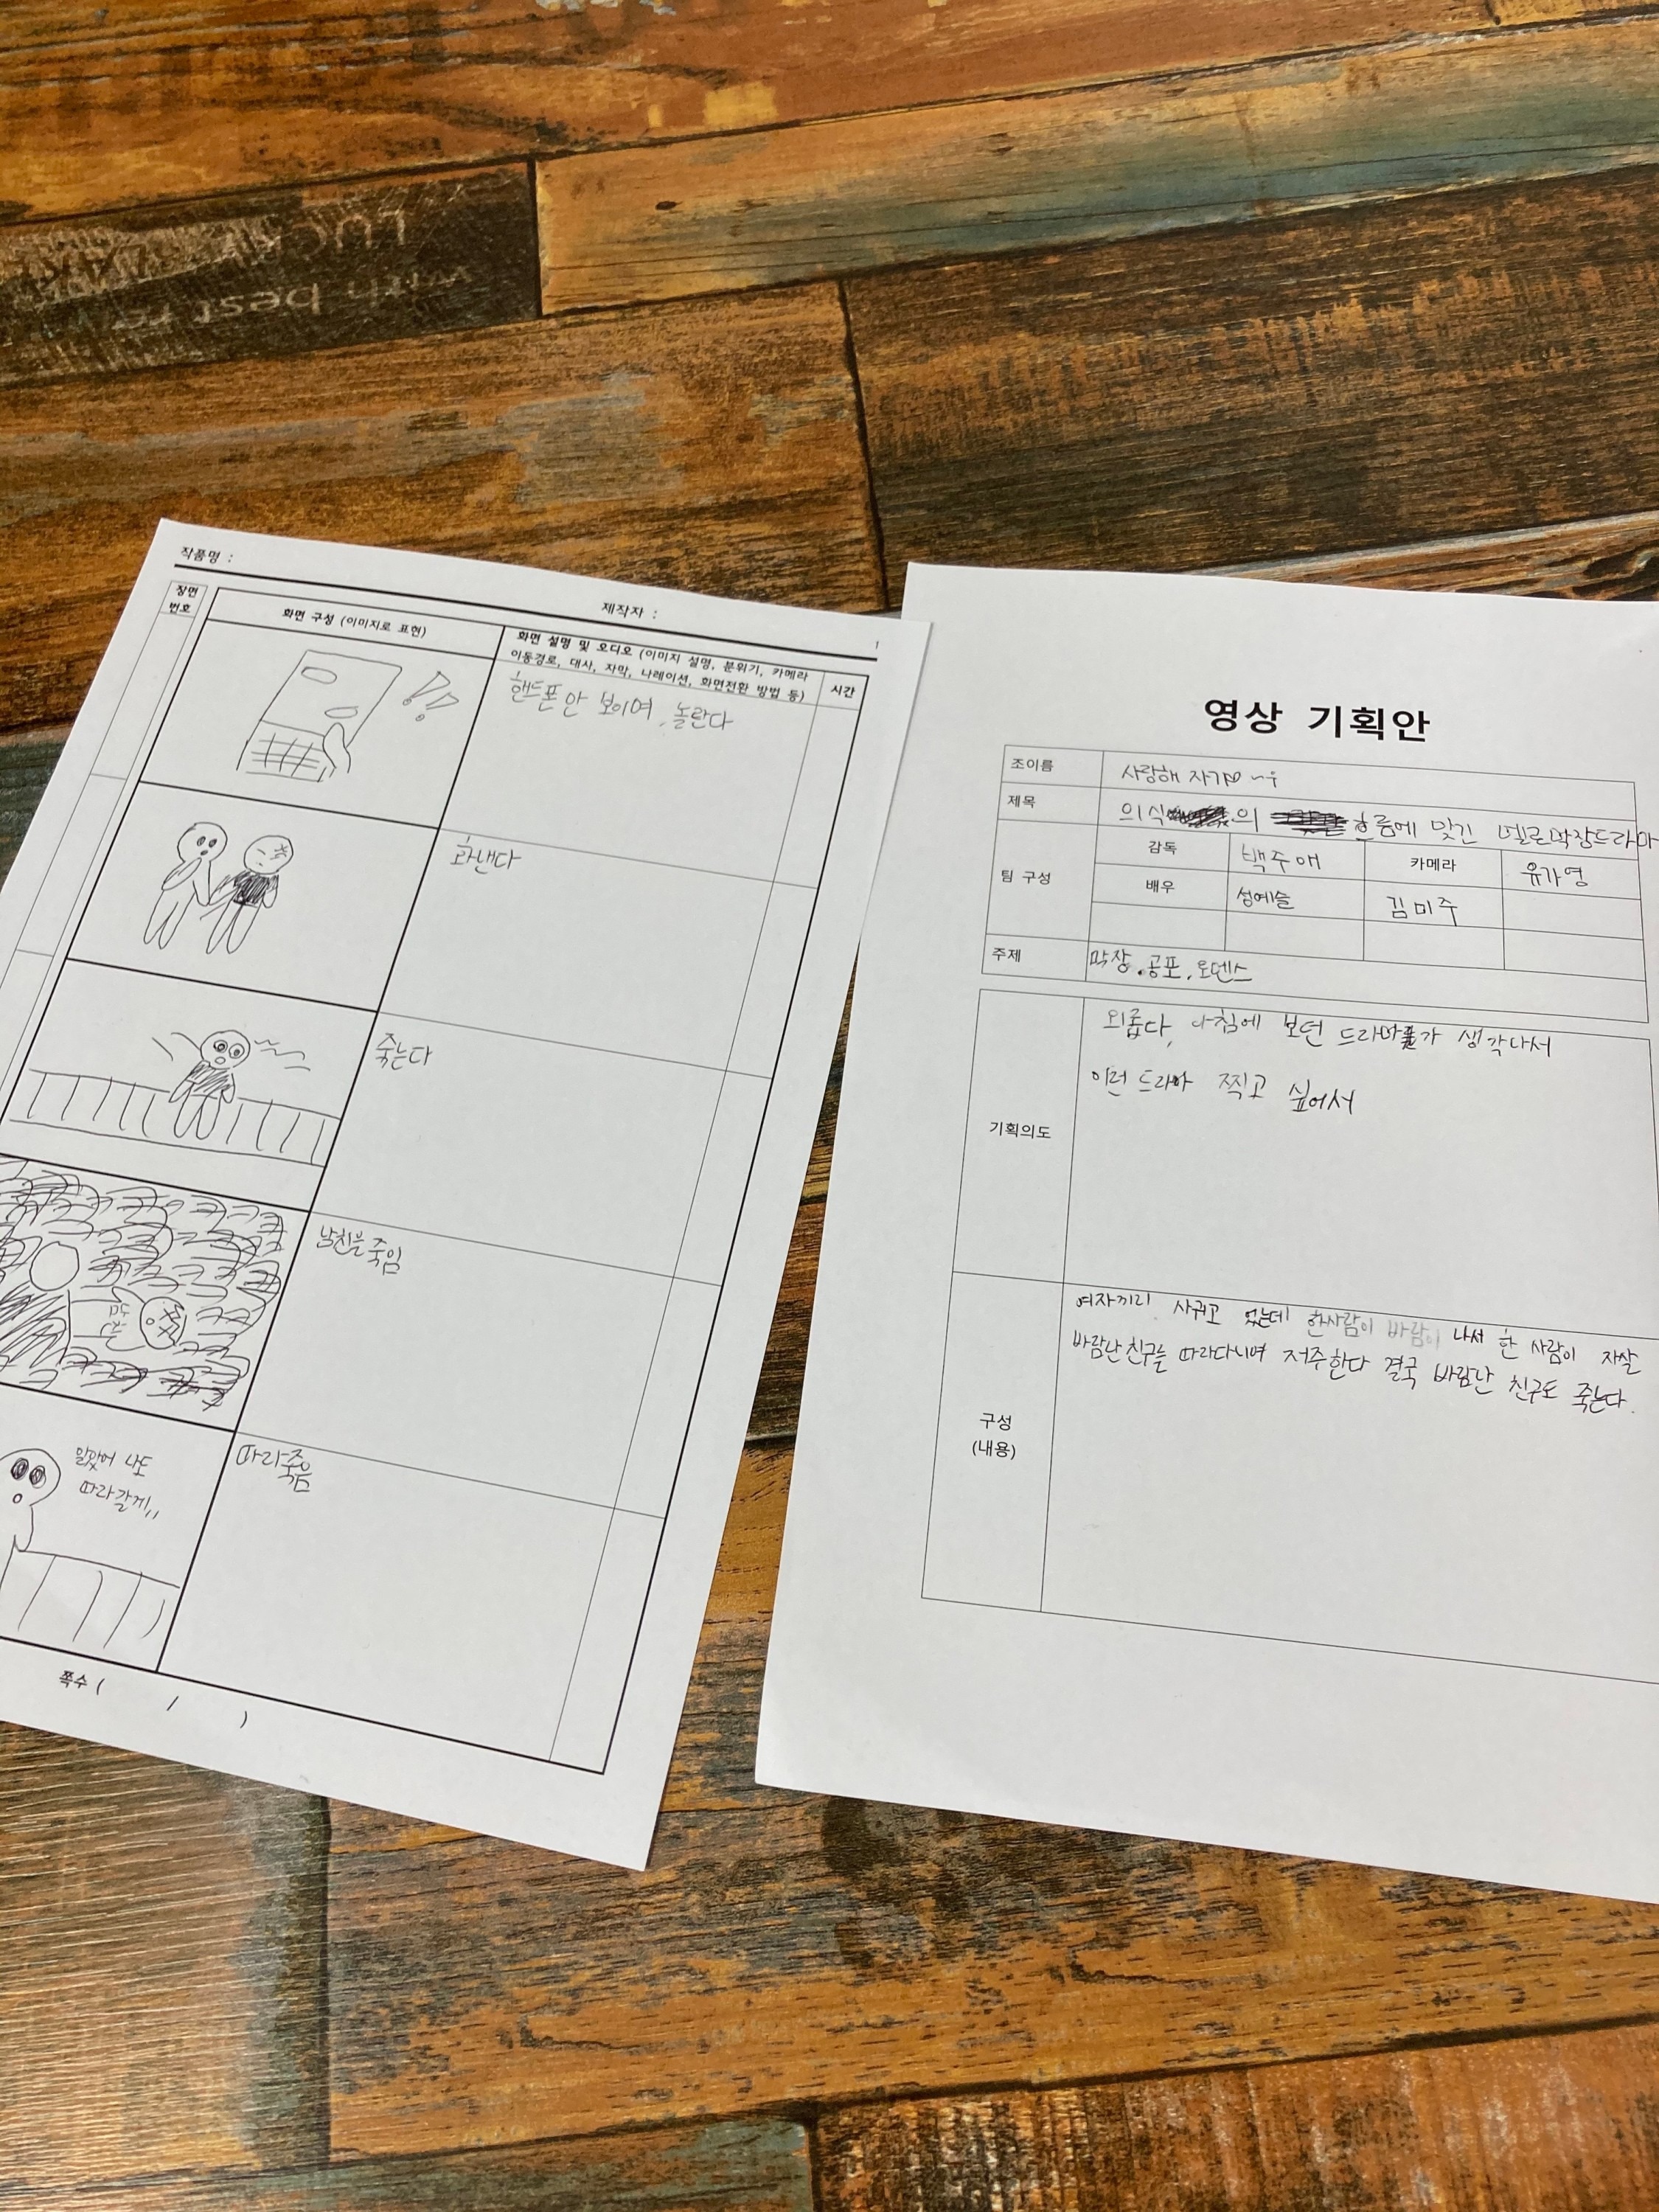 LUCK
with best re
작품명 :
제작자 :
1
장면
번호
화면 구성 (이미지로 표현)
화면 설명 및 오디오 (이미지 설명, 분위기, 카메라
이동경로, 대사, 자막, 나레이션, 화면전환 방법 등)
시간
핸드폰 안 보이며, 놀란다
화낸다
죽는다
남친을 죽임
알았어 나도
따라갈게,,
따라죽음
쪽수 ( / )
영상 기획안
조이름 사랑해 자기♡
제목 의식의 흐름에 맞긴 멜로막장드라마
팀 구성 감독 백주애 카메라 유가영
배우 성예슬 김미주
주제 막장.공포.로맨스
기획의도
외롭다, 아침에 보던 드라마가 생각나서
이런 드라마 찍고 싶어서
구성
(내용)
여자끼리 사귀고 있는데 한사람이 바람이 나서 한 사람이 자살
바람난 친구를 따라다니며 저주한다 결국 바람난 친구도 죽는다.